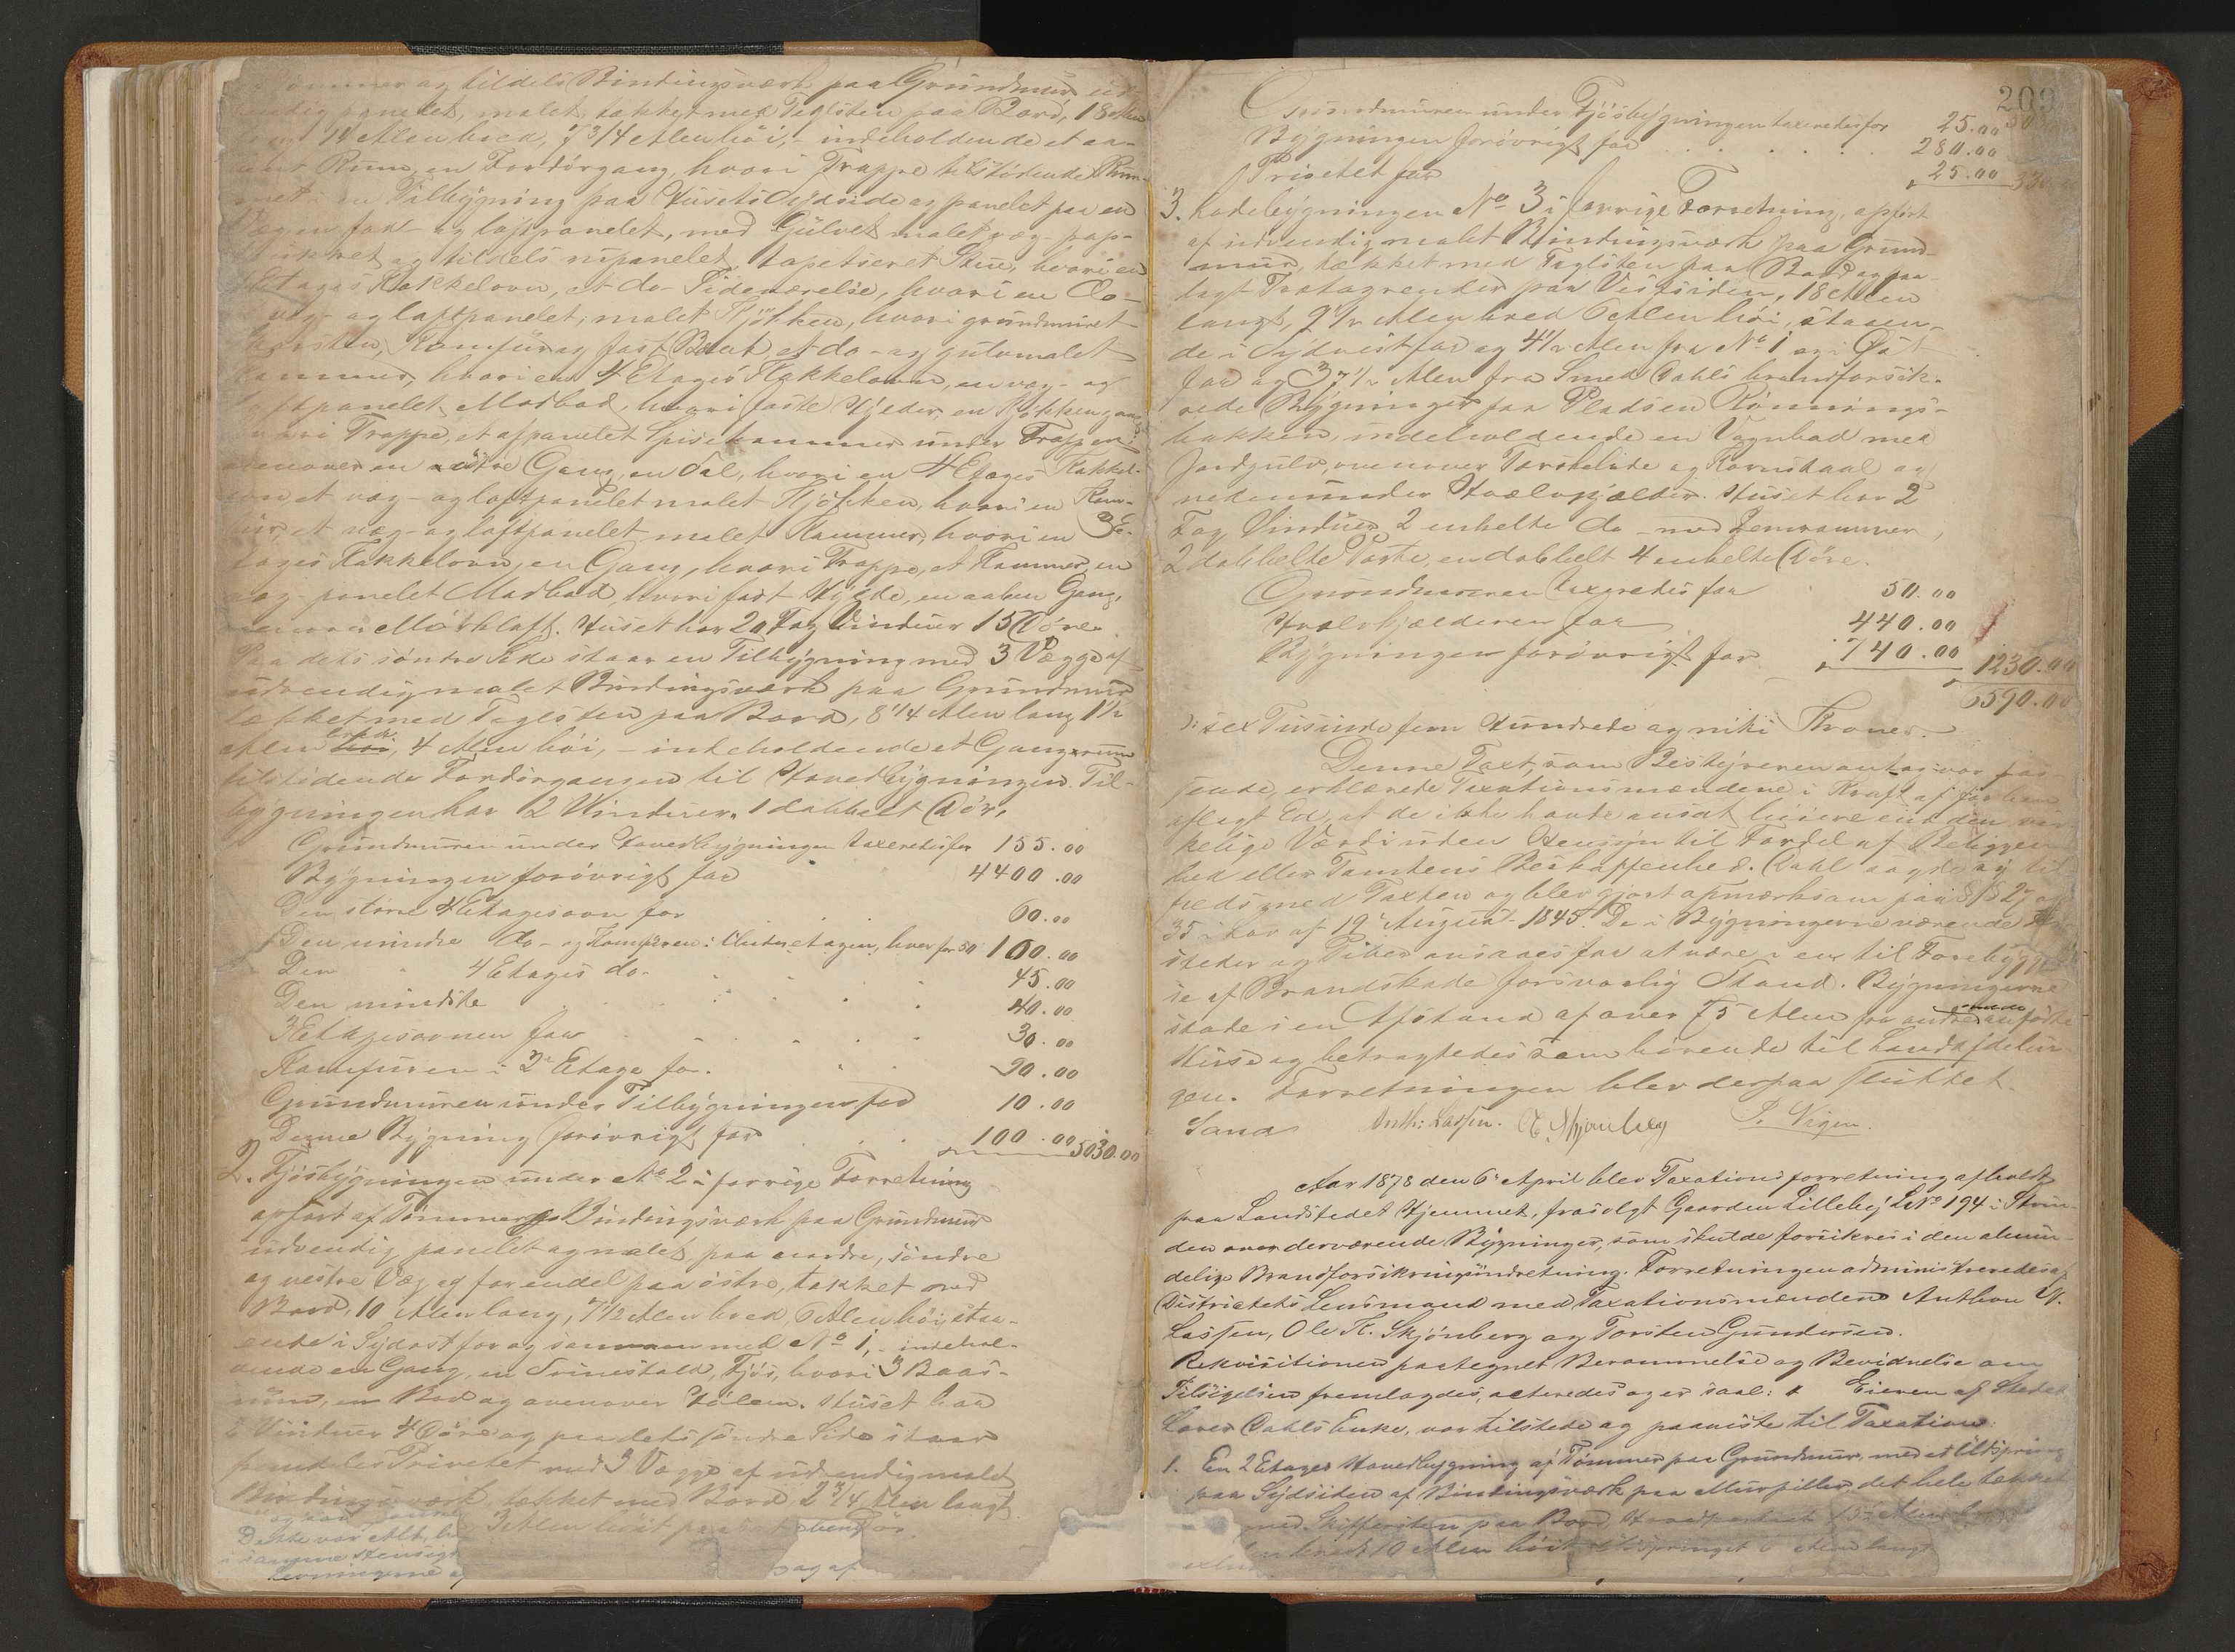 og tildels Bindingsværk paa Grundmuur ud-
panelet, malet, tækket med Taglsten paa Bord, 18 Alen
14 Alen bred, 7 3/4 Alen høi, - indeholdende et aa-
Rum, en Fordørgang, hvori Trappe tilstødende Rum-
met i en Tilbygning paa Husets Sydside og panelet paa en
Væg og loftpanelet, med Gulvet malet, væg- pap-
og tildels panelet, tapetseret Stue, hvori en
Etages Kakkelovn, et do Sideværelse, hvori en do
væg- og loftpanelet, malet Kjøkken, hvori grundmuret
Skorsten, Komfur og fast Bænk, et do- og gulvmalet
Kammer, hvori en 4 Etages Kakkelovn, en væg- og
loftpanelet Madbod, hvori faste Hylder, en Kjøkkengang
hvori Trappe, et afpanelet Spisekammer under Trappen;
ovenover en Gang, en Sal, hvori en 4 Etages Kakkel-
ovn et væg- og loftpanelet malet Kjøkken, hvori en Kom-
fur, et væg- og loftpanelet malet Kammer, hvori en 3 E-
tages Kakkelovn, en Gang, hvori Trappe, et Kammer, en
væg panelet Madbod, hvori fast Hylde, en aaben Gang,
ovenover Mørkloft. Huset har 20 Fag Vinduer 15 Døre.
Paa dets søndre Side staar en Tilbygning med 3 Vægge af
udvendig malet Bindingsværk paa Grundmuur
tækket med Taglsten paa Bord, 8 1/4 Alen lang 1 1/2
Alen bred, 4 Alen høi, - indeholdende et Gangrum
tilstødende Fordørgangen til Hovedbygningen. Til-
bygningen har 2 Vinduer, 1 dobbelt Dør,
Grundmuren under Hovedbygningen taxeredes for 155.00
Bygningen forøvrigt for 4400.00
Den større 4 Etagesovn for 60.00
Den mindre do- og Komfuren i Underetagen, hver for 50 100.00
Den " 4 Etages do. 45.00
Den mindste 40.00
3 Etagesovnen for 30.00
Komfuren i 2 Etage for 90.00
Grundmuren under Tilbygningen for 10.00
Denne Bygning forøvrigt for 100.00 5030.00
2. Fjøsbygningen under No 2 i forrige Forretning
opført af Tømmer og Bindingsværk paa Grundmuur
udvendig panelet og malet paa nordre, søndre
og vestre Væg og for endel paa østre, tækket med
Bord, 10 Alen lang, 7 1/2 Alen bred, 6 Alen høi, staa-
ende i Sydost for og sammen med No 1, - indehol-
dende en Gang, en Svinestald, Fjøs, hvori 3 Baas-
rum, en Bod og ovenover Høilem. Huset har
Vinduer 4 Døre og paa dets søndre Side staar
Privetet med 3 Vægge af udvendig malet
Bindingsværk, tækket med Bord 2 3/4 Alen langt
3 Alen høit
Dette var Alt,
i samme Hensigt
209
Grundmuren under Fjøsbygningen taxeredes for 25.00
Bygningen forøvrigt for 280.00
Privetet for 25.00 330
3. Ladebygningen No 3 i forrige Forretning, opført
af udvendig malet Bindingsværk paa Grund-
muur, tækket med Taglsten paa Bord og paa-
lagt Trætagrender paa Vestsiden, 18 Alen
lang, 9 1/2 Alen bred 6 Alen høi, staaen-
de i Sydvest for og 4 1/2 Alen fra No 1 og i Øst
for og 37 1/2 Alen fra Smed Dahls brandforsik-
rede Bygninger paa Pladsen Rønnings-
bakken, indeholdende en Vognbod med
Jordgulv, ovenover Tærskelade og Kornstaal og
nedenunder Hvælvkjælder. Huset har 2
Fag Vinduer 2 enkelte do - med Jernrammer,
2 dobbelte Porte, en dobbelt 4 enkelte Døre.
Grundmuren taxeredes for 50.00
Hvælvkjælderen for 440.00
Bygningen forøvrigt for 740.00 1230.00
6590.00
): sex Tusinde fem Hundrede og niti Kroner.
Denne Taxt, som Bestyreren antog var pas-
sende, erklærede Taxationsmændene i Kraft af forhen
aflagt Ed, at de ikke havde ansat høiere end den vir-
kelige Værdi uden Hensyn til Fordel af Beliggen-
hed eller Tomtens Beskaffenhed. Dahl sagde sig til
freds med Taxten og blev gjort opmærksom paa §§ 27 og
35 i Lov af 19 August 1845. De i Bygningerne værende Ild-
steder og Piber ansaaes for at være i en til Forebyggel-
se af Brandskade forsvarlig Stand. Bygningerne
stode i en Afstand af over 75 Alen fra andre anførte
Huse og betragtedes som hørende til Landafdelin-
gen. Forretningen blev derpaa sluttet.
Sand Anth: Lassen. O. Skjønberg P. Vigen.
Aar 1878 den 6 April blev Taxationsforretning afholdt
paa Landstedet Hjemmet, frasolgt Gaarden Lilleby LNo 194 i Strin-
den over derværende Bygninger, som skulde forsikres i den almin-
delige Brandforsikringsindretning. Forretningen administreredes af
Districtets Lensmand med Taxationsmændene Anthon W.
Lassen, Ole K. Skjønberg og Torsten Gundersen.
Rekvisitionen paategnet Berammelse og Bevidnelse om
Tilsigelsen fremlagdes, acteredes og er saal: 1 Eieren af Stedet
Dahls Enke, var tilstede og paaviste til Taxation:
1. En 2 Etages Hovedbygning af Tømmer paa Grundmuur, med et Udspring
paa Sydsiden af Bindingsværk paa Murpiller, det hele tækket
med Skifersten paa Bord 15 Alen
bredt 10 Alen høit Udspringet 6 Alen langt